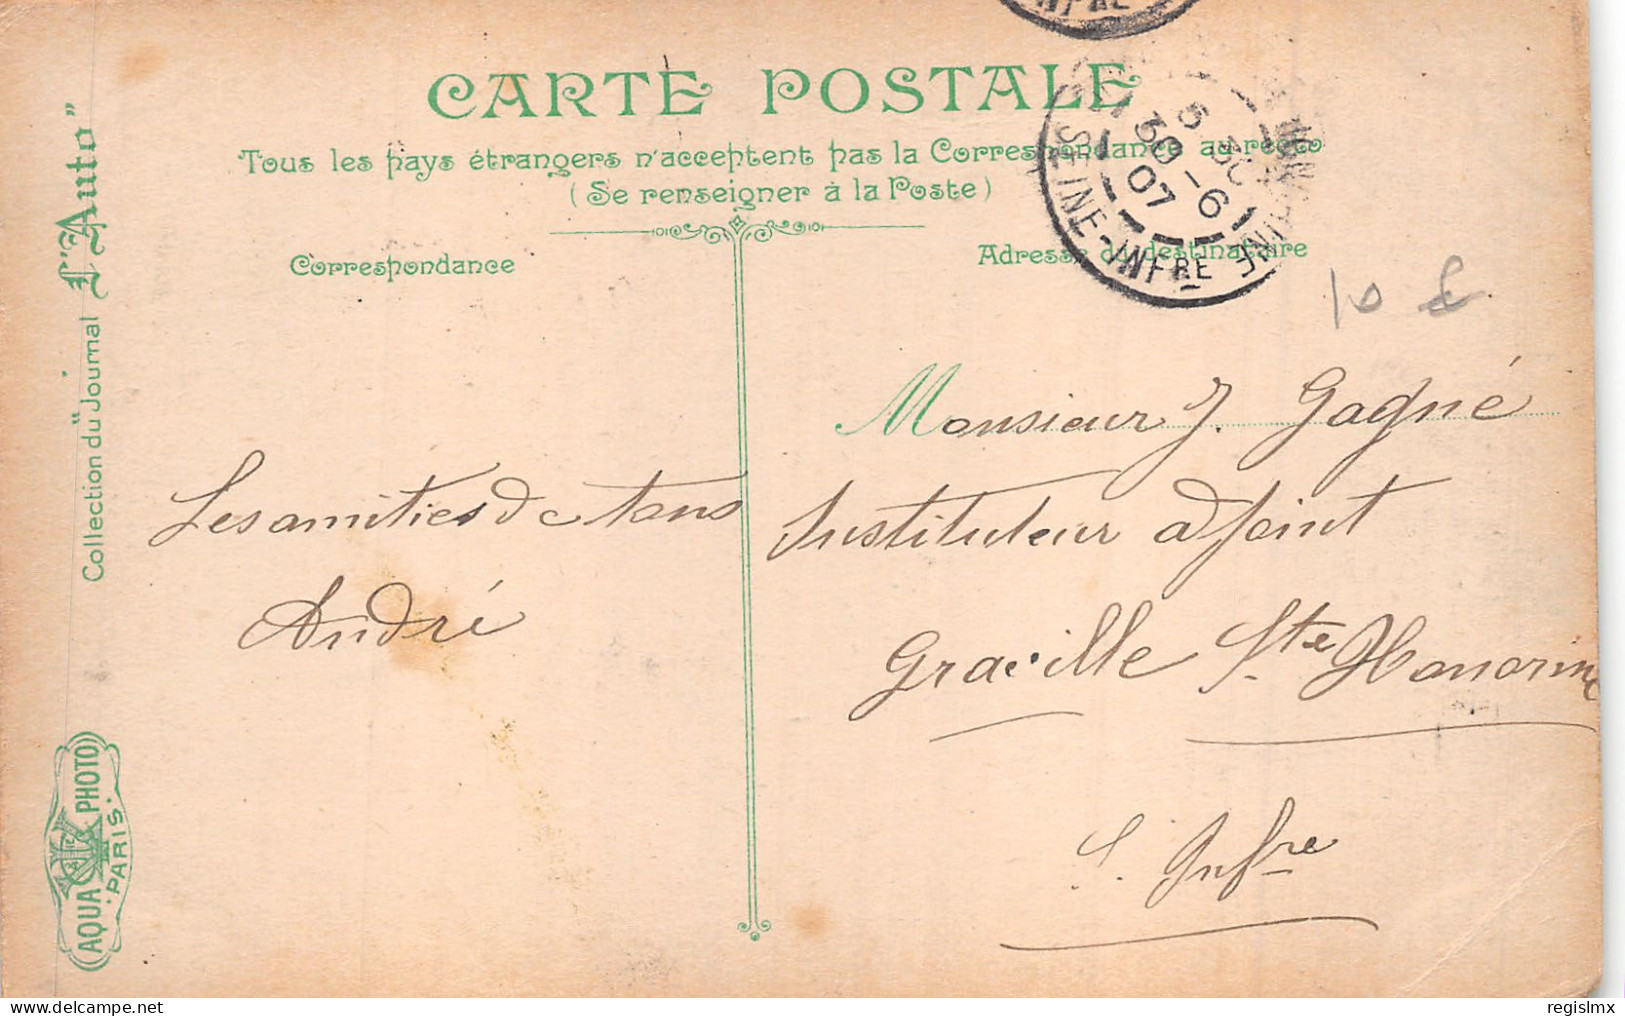 CARTE POSTALE
Tous les pays étrangers n'acceptent pas la Correspondance au recto
(Se renseigner à la Poste)
Correspondance
Adresse du destinataire
Collection du Journal L'Auto"
AQUA PHOTO
PARIS
5 30
30 -6
07
SEINE-INFRE
10 £
Monsieur J. Gagné
Instituteur adjoint
Graville Ste Honorine
S. Infre
Les amities de tons
André
regislmx